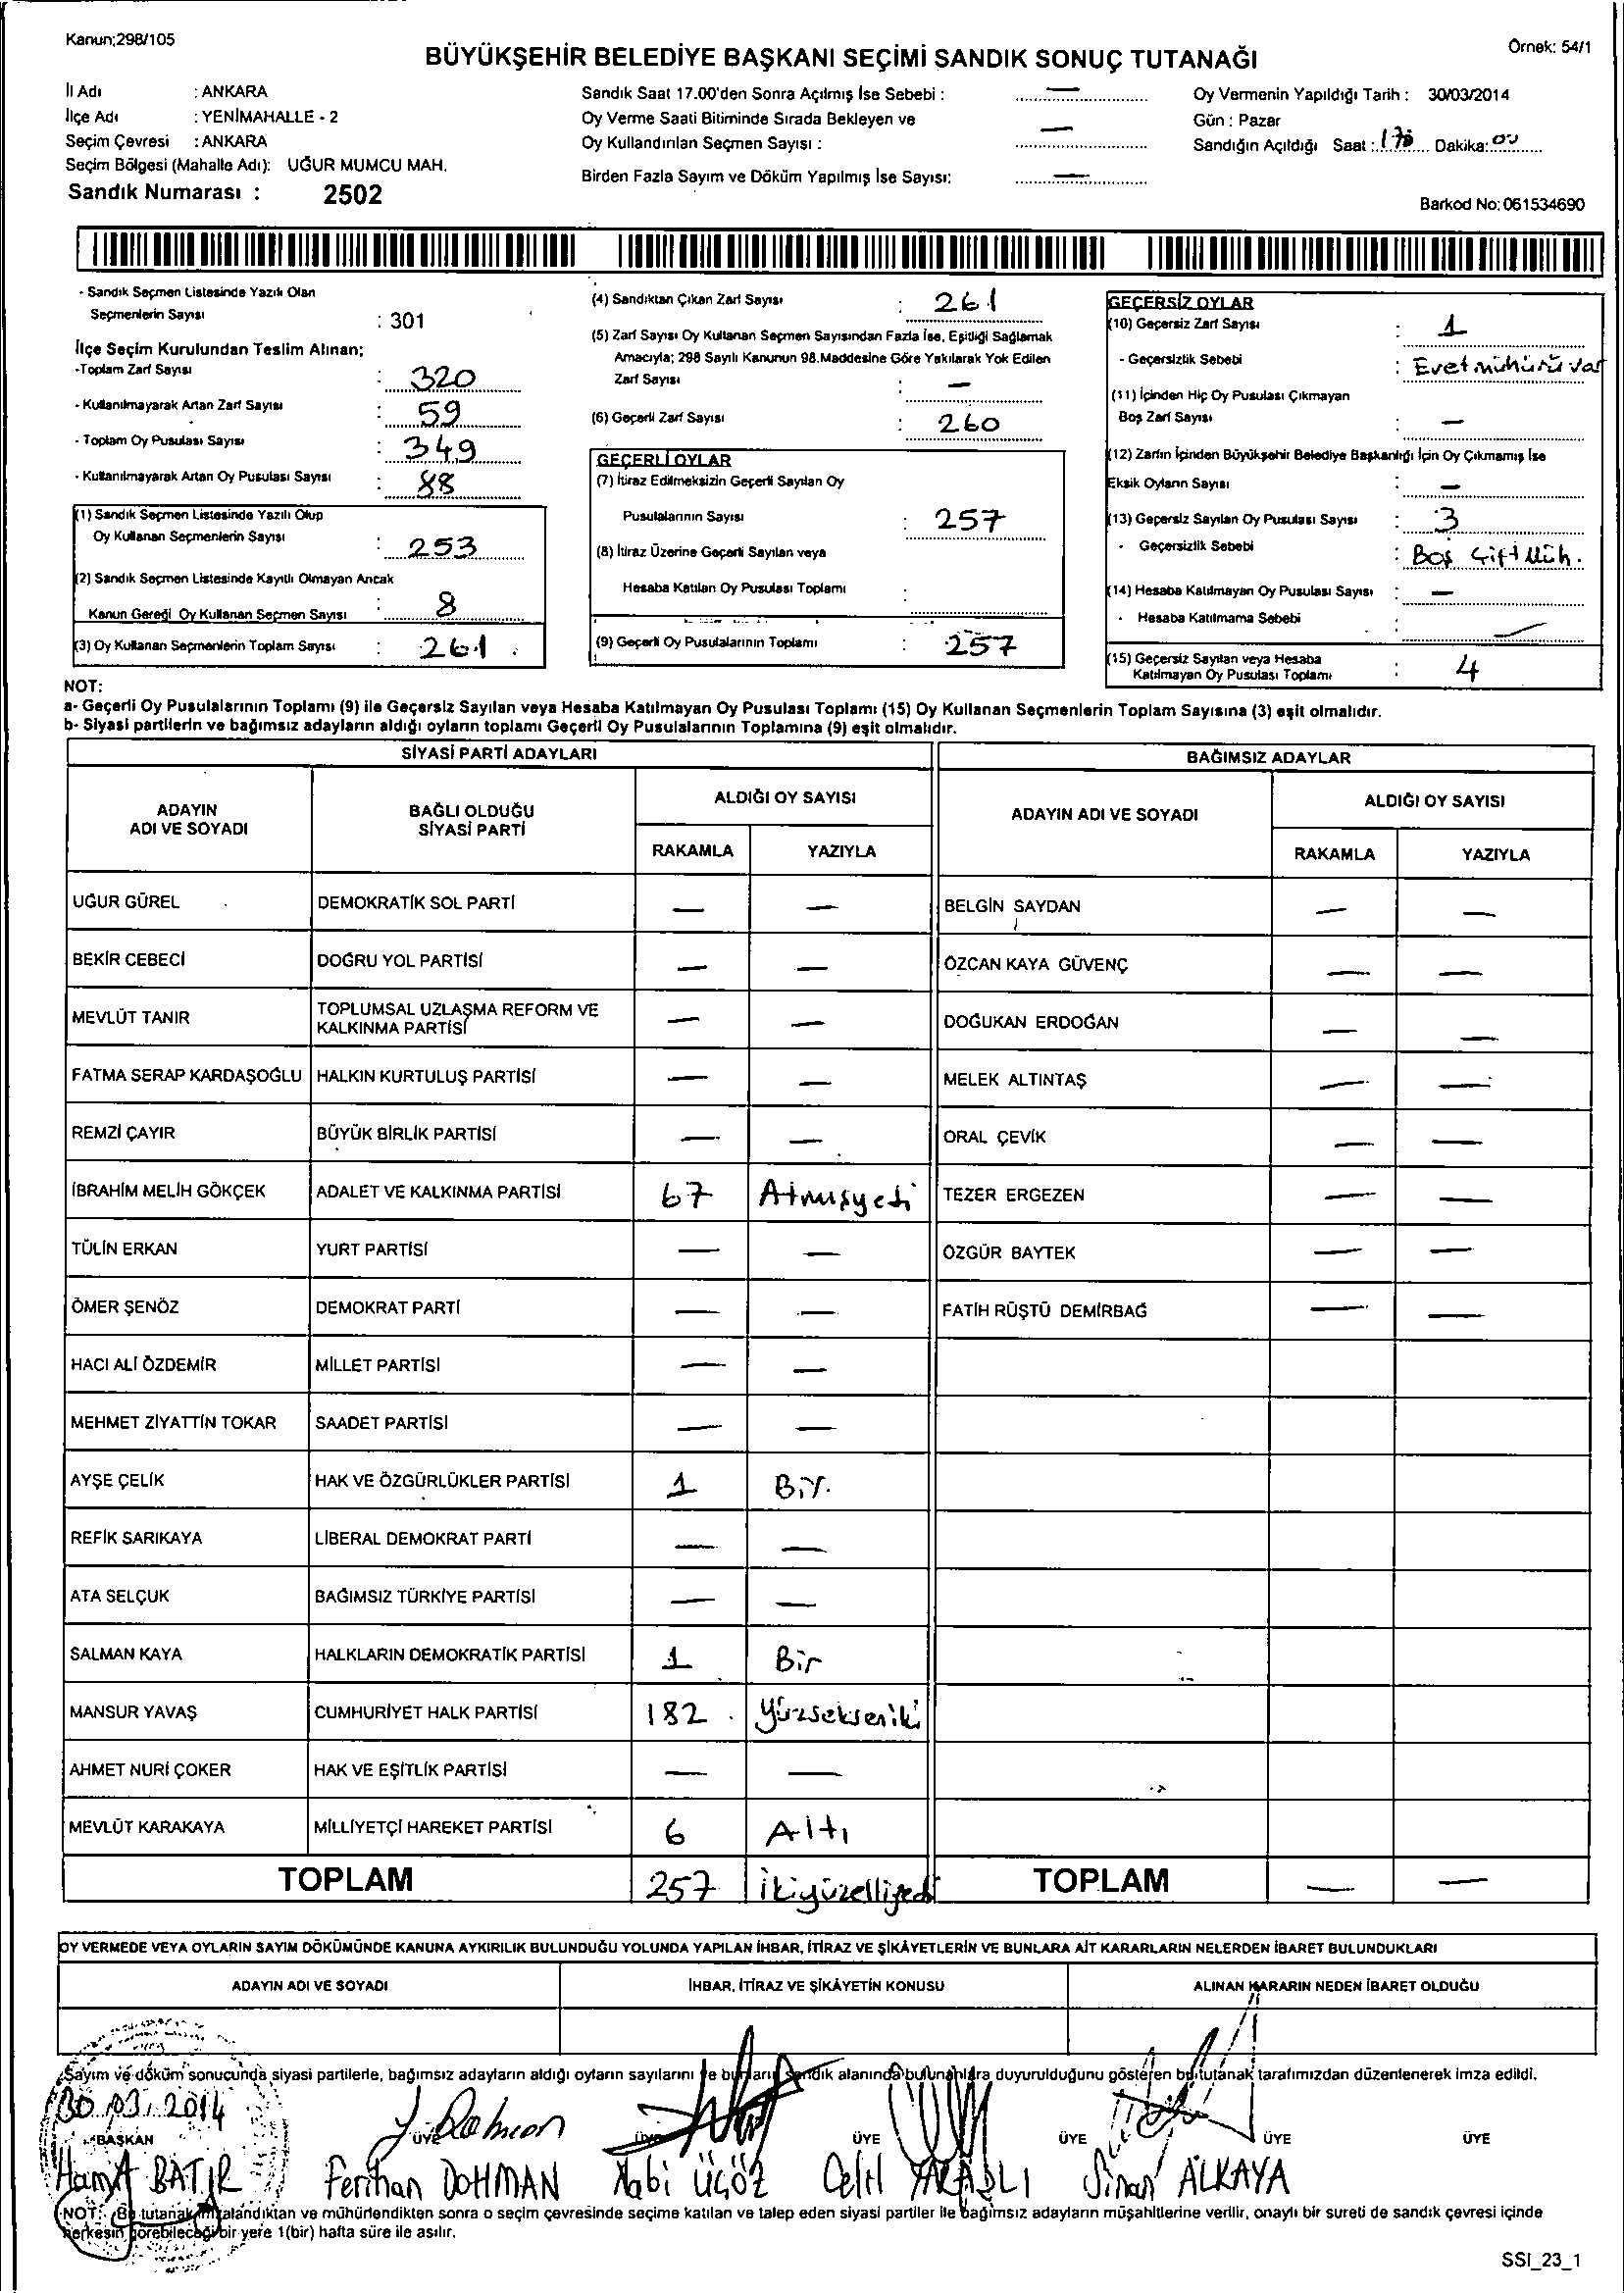 Kanun;298/105
Örnek: 54/1
BÜYÜKŞEHİR BELEDİYE BAŞKANI SEÇİMİ SANDIK SONUÇ TUTANAĞI
İl Adı : ANKARA
İlçe Adı : YENİMAHALLE - 2
Seçim Çevresi : ANKARA
Seçim Bölgesi (Mahalle Adı): UĞUR MUMCU MAH.
Sandık Numarası : 2502
Sandık Saat 17.00'den Sonra Açılmış İse Sebebi : —
Oy Verme Saati Bitiminde Sırada Bekleyen ve
Oy Kullandırılan Seçmen Sayısı : —
Birden Fazla Sayım ve Döküm Yapılmış İse Sayısı: —
Oy Vermenin Yapıldığı Tarih : 30/03/2014
Gün : Pazar
Sandığın Açıldığı Saat : Dakika:
Barkod No: 061534690
- Sandık Seçmen Listesinde Yazılı Olan
Seçmenlerin Sayısı : 301
İlçe Seçim Kurulundan Teslim Alınan;
-Toplam Zarf Sayısı : 320
- Kullanılmayarak Artan Zarf Sayısı : 59
- Toplam Oy Pusulası Sayısı : 349
- Kullanılmayarak Artan Oy Pusulası Sayısı : 88
(1) Sandık Seçmen Listesinde Yazılı Olup
Oy Kullanan Seçmenlerin Sayısı : 253
(2) Sandık Seçmen Listesinde Kayıtlı Olmayan Ancak
Kanun Gereği Oy Kullanan Seçmen Sayısı : 8
(3) Oy Kullanan Seçmenlerin Toplam Sayısı : 261
(4) Sandıktan Çıkan Zarf Sayısı : 261
(5) Zarf Sayısı Oy Kullanan Seçmen Sayısından Fazla İse, Eşitliği Sağlamak
Amacıyla; 298 Sayılı Kanunun 98.Maddesine Göre Yakılarak Yok Edilen
Zarf Sayısı : —
(6) Geçerli Zarf Sayısı : 260
GEÇERLİ OYLAR
(7) İtiraz Edilmeksizin Geçerli Sayılan Oy
Pusulalarının Sayısı : 257
(8) İtiraz Üzerine Geçerli Sayılan veya
Hesaba Katılan Oy Pusulası Toplamı :
(9) Geçerli Oy Pusulalarının Toplamı : 257
GEÇERSİZ OYLAR
(10) Geçersiz Zarf Sayısı : 1
- Geçersizlik Sebebi : Evet mühürü var
(11) İçinden Hiç Oy Pusulası Çıkmayan
Boş Zarf Sayısı : —
(12) Zarfın İçinden Büyükşehir Belediye Başkanlığı İçin Oy Çıkmamış İse
Eksik Oyların Sayısı : —
(13) Geçersiz Sayılan Oy Pusulası Sayısı : 3
- Geçersizlik Sebebi : Boş Çift Müh.
(14) Hesaba Katılmayan Oy Pusulası Sayısı : —
- Hesaba Katılmama Sebebi : —
(15) Geçersiz Sayılan veya Hesaba
Katılmayan Oy Pusulası Toplamı : 4
NOT:
a- Geçerli Oy Pusulalarının Toplamı (9) ile Geçersiz Sayılan veya Hesaba Katılmayan Oy Pusulası Toplamı (15) Oy Kullanan Seçmenlerin Toplam Sayısına (3) eşit olmalıdır.
b- Siyasi partilerin ve bağımsız adayların aldığı oyların toplamı Geçerli Oy Pusulalarının Toplamına (9) eşit olmalıdır.
SİYASİ PARTİ ADAYLARI BAĞIMSIZ ADAYLAR
ADAYIN ADI VE SOYADI BAĞLI OLDUĞU SİYASİ PARTİ ALDIĞI OY SAYISI ADAYIN ADI VE SOYADI ALDIĞI OY SAYISI
RAKAMLA YAZIYLA RAKAMLA YAZIYLA
UĞUR GÜREL DEMOKRATİK SOL PARTİ — — BELGİN SAYDAN — —
BEKİR CEBECİ DOĞRU YOL PARTİSİ — — ÖZCAN KAYA GÜVENÇ — —
MEVLÜT TANIR TOPLUMSAL UZLAŞMA REFORM VE KALKINMA PARTİSİ — — DOĞUKAN ERDOĞAN — —
FATMA SERAP KARDAŞOĞLU HALKIN KURTULUŞ PARTİSİ — — MELEK ALTINTAŞ — —
REMZİ ÇAYIR BÜYÜK BİRLİK PARTİSİ — — ORAL ÇEVİK — —
İBRAHİM MELİH GÖKÇEK ADALET VE KALKINMA PARTİSİ 67 Atmışyedi TEZER ERGEZEN — —
TÜLİN ERKAN YURT PARTİSİ — — ÖZGÜR BAYTEK — —
ÖMER ŞENÖZ DEMOKRAT PARTİ — — FATİH RÜŞTÜ DEMİRBAĞ — —
HACI ALİ ÖZDEMİR MİLLET PARTİSİ — —
MEHMET ZİYATTİN TOKAR SAADET PARTİSİ — —
AYŞE ÇELİK HAK VE ÖZGÜRLÜKLER PARTİSİ 1 Bir.
REFİK SARIKAYA LİBERAL DEMOKRAT PARTİ — —
ATA SELÇUK BAĞIMSIZ TÜRKİYE PARTİSİ — —
SALMAN KAYA HALKLARIN DEMOKRATİK PARTİSİ 1 Bir
MANSUR YAVAŞ CUMHURİYET HALK PARTİSİ 182 . yüzsekseniki
AHMET NURİ ÇOKER HAK VE EŞİTLİK PARTİSİ — —
MEVLÜT KARAKAYA MİLLİYETÇİ HAREKET PARTİSİ 6 Altı
TOPLAM 257 ikiyüzelliyedi TOPLAM — —
OY VERMEDE VEYA OYLARIN SAYIM DÖKÜMÜNDE KANUNA AYKIRILIK BULUNDUĞU YOLUNDA YAPILAN İHBAR, İTİRAZ VE ŞİKÂYETLERİN VE BUNLARA AİT KARARLARIN NELERDEN İBARET BULUNDUKLARI
ADAYIN ADI VE SOYADI İHBAR, İTİRAZ VE ŞİKÂYETİN KONUSU ALINAN KARARIN NEDEN İBARET OLDUĞU
Sayım ve döküm sonucunda siyasi partilerle, bağımsız adayların aldığı oyların sayılarını ve bunların sandık alanında bulunanlara duyurulduğunu gösteren bu tutanak tarafımızdan düzenlenerek imza edildi.
30.03.2014
BAŞKAN ÜYE ÜYE ÜYE ÜYE ÜYE ÜYE
BATIR Ferihan DOHMAN Nabi ÜÇÖZ Celil Sinan ALKAYA
NOT: Bu tutanak imzalandıktan ve mühürlendikten sonra o seçim çevresinde seçime katılan ve talep eden siyasi partiler ile bağımsız adayların müşahitlerine verilir, onaylı bir sureti de sandık çevresi içinde
herkesin görebileceği bir yere 1(bir) hafta süre ile asılır.
SSI_23_1